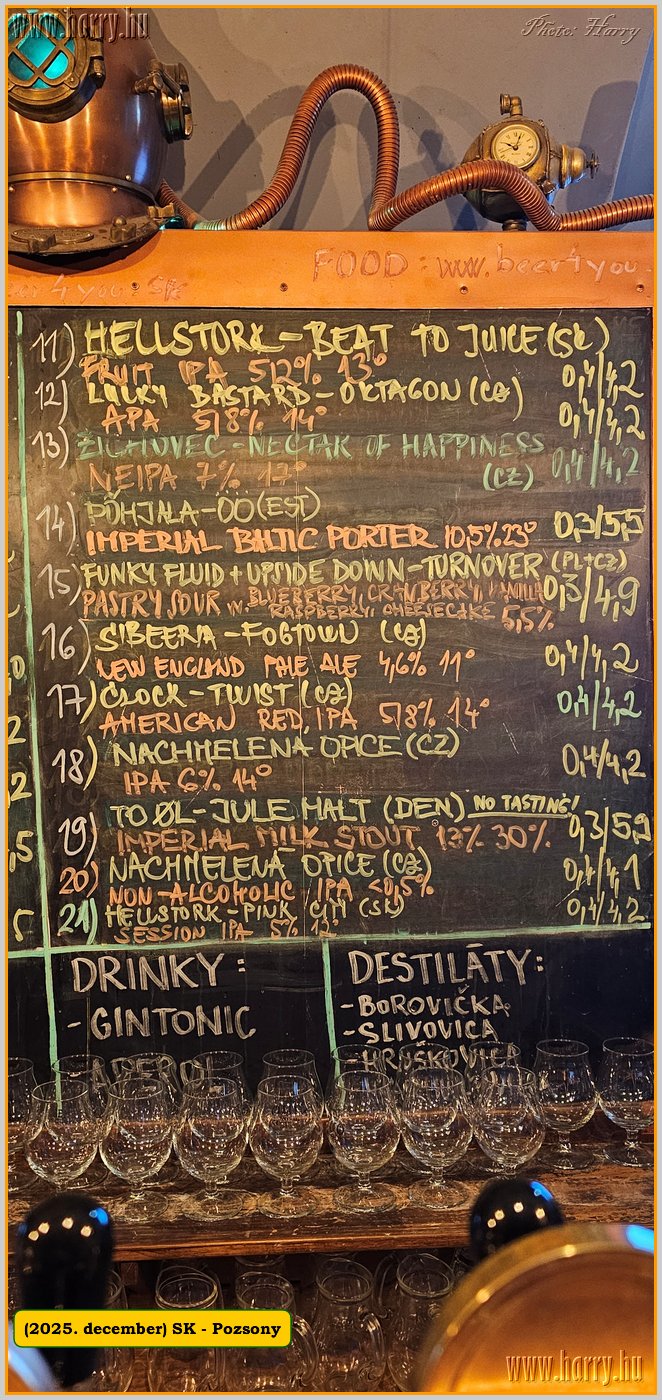 www.harry.hu
Photo: Harry
FOOD: www.beer4you.
er4you.sk
11) HELLSTORK - BEAT TO JUICE (SK)
FRUIT IPA 5,2% 13° 0,4/4,2
12) LUCKY BASTARD - OKTAGON (CZ)
APA 5,8% 14° 0,4/4,2
13) ZICHOVEC - NECTAR OF HAPPINESS
NEIPA 7% 17° (CZ) 0,4/4,2
14) PÕHJALA - ÖÖ (EST)
IMPERIAL BALTIC PORTER 10,5% 23° 0,3/5,5
15) FUNKY FLUID + UPSIDE DOWN - TURNOVER (PL+CZ)
PASTRY SOUR W. BLUEBERRY, CRANBERRY, VANILLA 0,3/4,9
RASPBERRY, CHEESECAKE 5,5%
16) SIBEERIA - FOGTOWN (CZ)
NEW ENGLAND PALE ALE 4,6% 11° 0,4/4,2
17) CLOCK - TWIST (CZ)
AMERICAN RED IPA 5,8% 14° 0,4/4,2
18) NACHMELENÁ OPICE (CZ)
IPA 6% 14° 0,4/4,2
19) TO ØL - JULE MALT (DEN) NO TASTING!
IMPERIAL MILK STOUT 13% 30% 0,3/5,9
20) NACHMELENÁ OPICE (CZ)
NON-ALCOHOLIC IPA <0,5% 0,4/4,1
21) HELLSTORK - PINK (SK)
SESSION IPA 5% 12° 0,4/4,2
DRINKY:
- GINTONIC
APEROL
DESTILÁTY:
- BOROVIČKA
- SLIVOVICA
- HRUŠKOVICA
(2025. december) SK - Pozsony
www.harry.hu